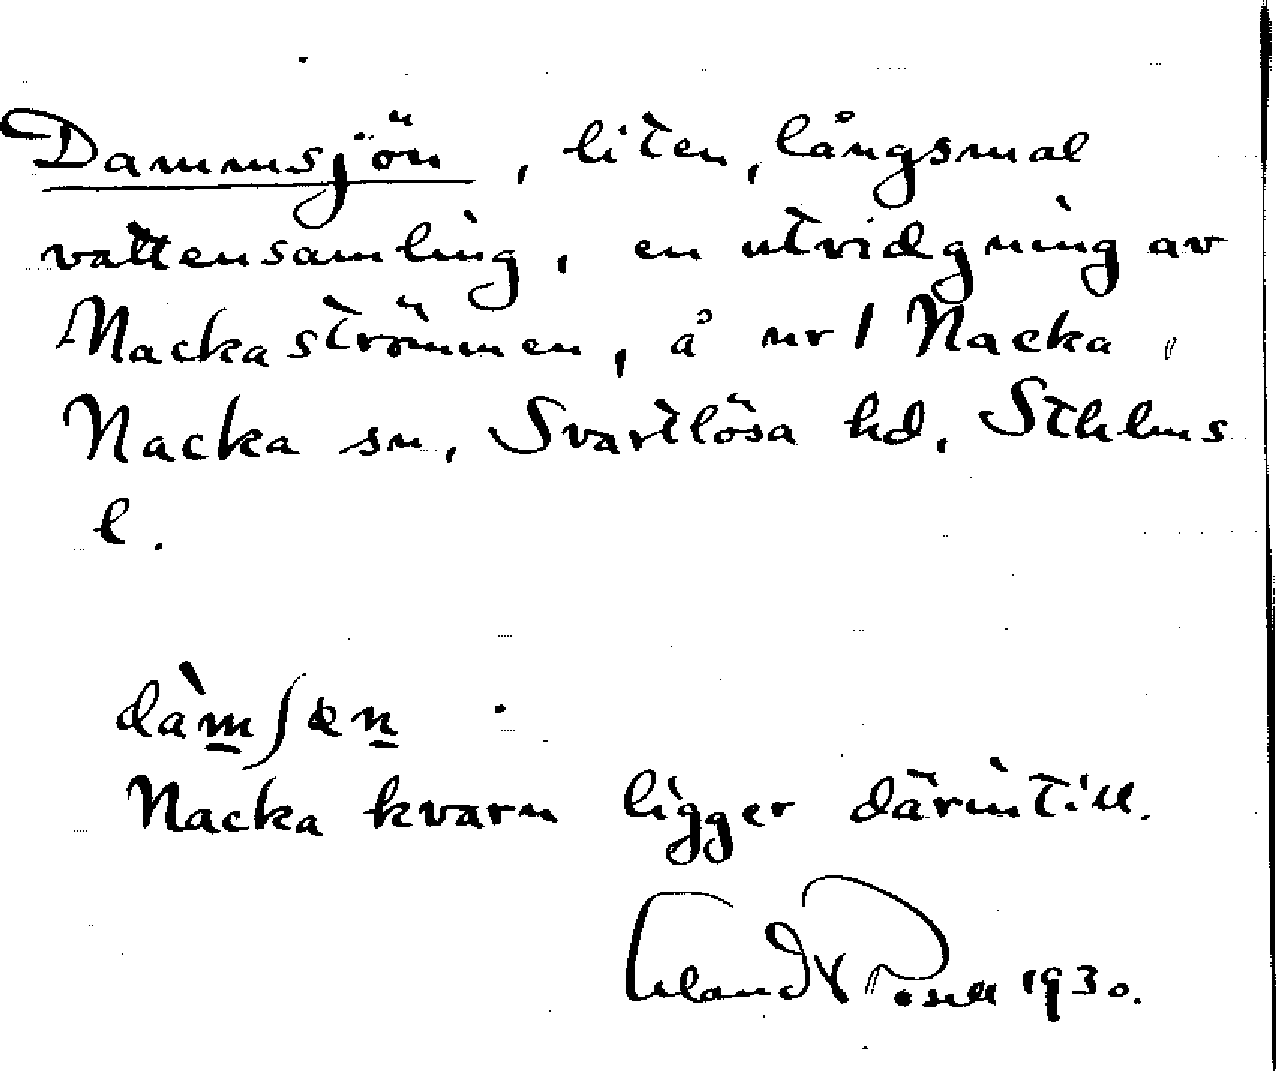 Dammsjön, liten, långsmal
vattensamling, en utvidgning av
Nackaströmmen, å nr 1 Nacka,
Nacka sn, Svartlösa hd, Sthlms
l.
dàm̲ʃɶn̲
Nacka kvarn ligger därintill.
Erland Rosell 1930.